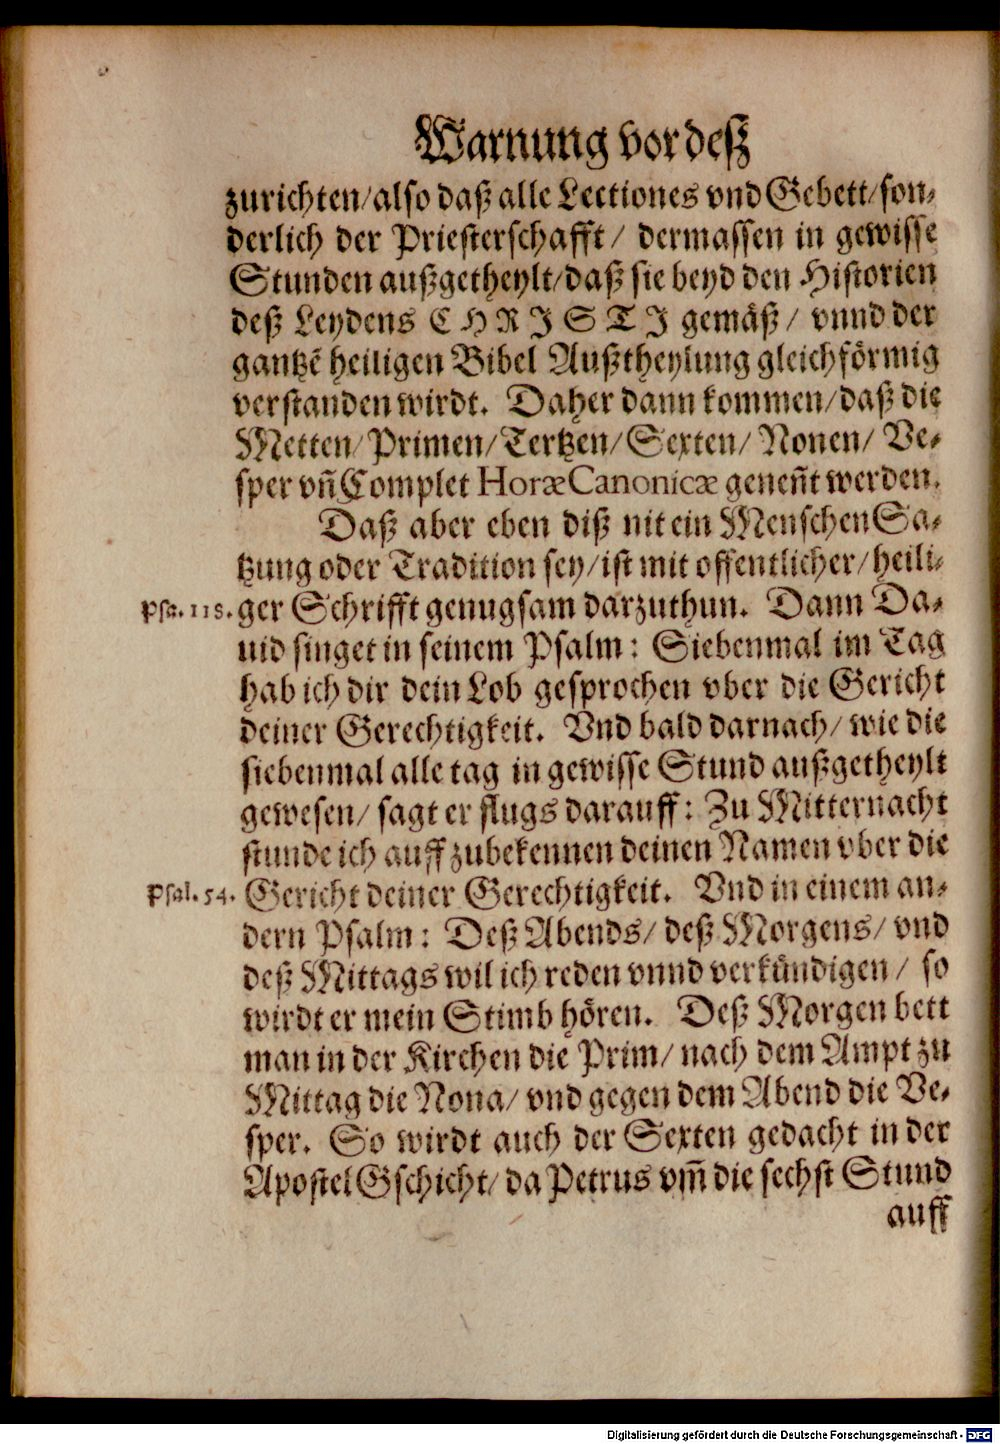 Warnung vor deß
zurichten/also daß alle Lectiones vnd Gebett/son-
derlich der Priesterschafft/ dermassen in gewisse
Stunden außgetheylt/daß sie beyd den Historien
deß Leydens CHRISTI gemäß/ vnnd der
gantzē heiligen Bibel Außtheylung gleichförmig
verstanden wirdt. Daher dann kommen/daß die
Metten/Primen/Tertzen/Sexten/Nonen/ Ve-
sper vñ Complet Horæ Canonicæ geneñt werden.
Daß aber eben diß nit ein Menschen Sa-
tzung oder Tradition sey/ist mit offentlicher/heili-
Psa. 118. ger Schrifft genugsam darzuthun. Dann Da-
uid singet in seinem Psalm: Siebenmal im Tag
hab ich dir dein Lob gesprochen vber die Gericht
deiner Gerechtigkeit. Vnd bald darnach/ wie die
siebenmal alle tag in gewisse Stund außgetheylt
gewesen/ sagt er flugs darauff: Zu Mitternacht
stunde ich auff zubekennen deinen Namen vber die
Psal. 54. Gericht deiner Gerechtigkeit. Vnd in einem an-
dern Psalm: Deß Abends/ deß Morgens/ vnd
deß Mittags wil ich reden vnnd verkündigen/ so
wirdt er mein Stimb hören. Deß Morgen bett
man in der Kirchen die Prim/ nach dem Ampt zu
Mittag die Nona/ vnd gegen dem Abend die Ve-
sper. So wirdt auch der Sexten gedacht in der
Apostel Gschicht/ da Petrus vm̃ die sechst Stund
auff
Digitalisierung gefördert durch die Deutsche Forschungsgemeinschaft - DFG